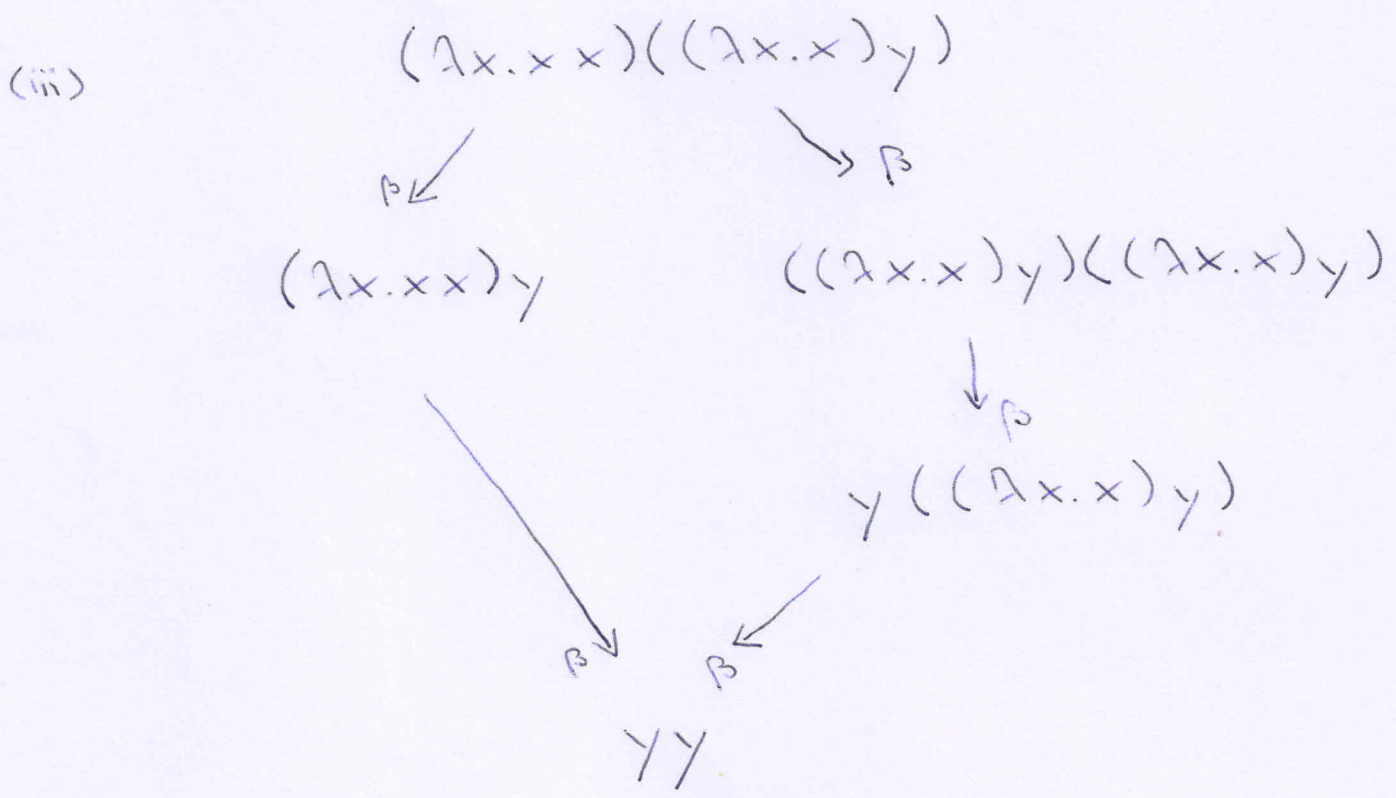 (iii) (λx.xx)((λx.x)y)
β β
(λx.xx)y ((λx.x)y)((λx.x)y)
β
y((λx.x)y)
β β
yy